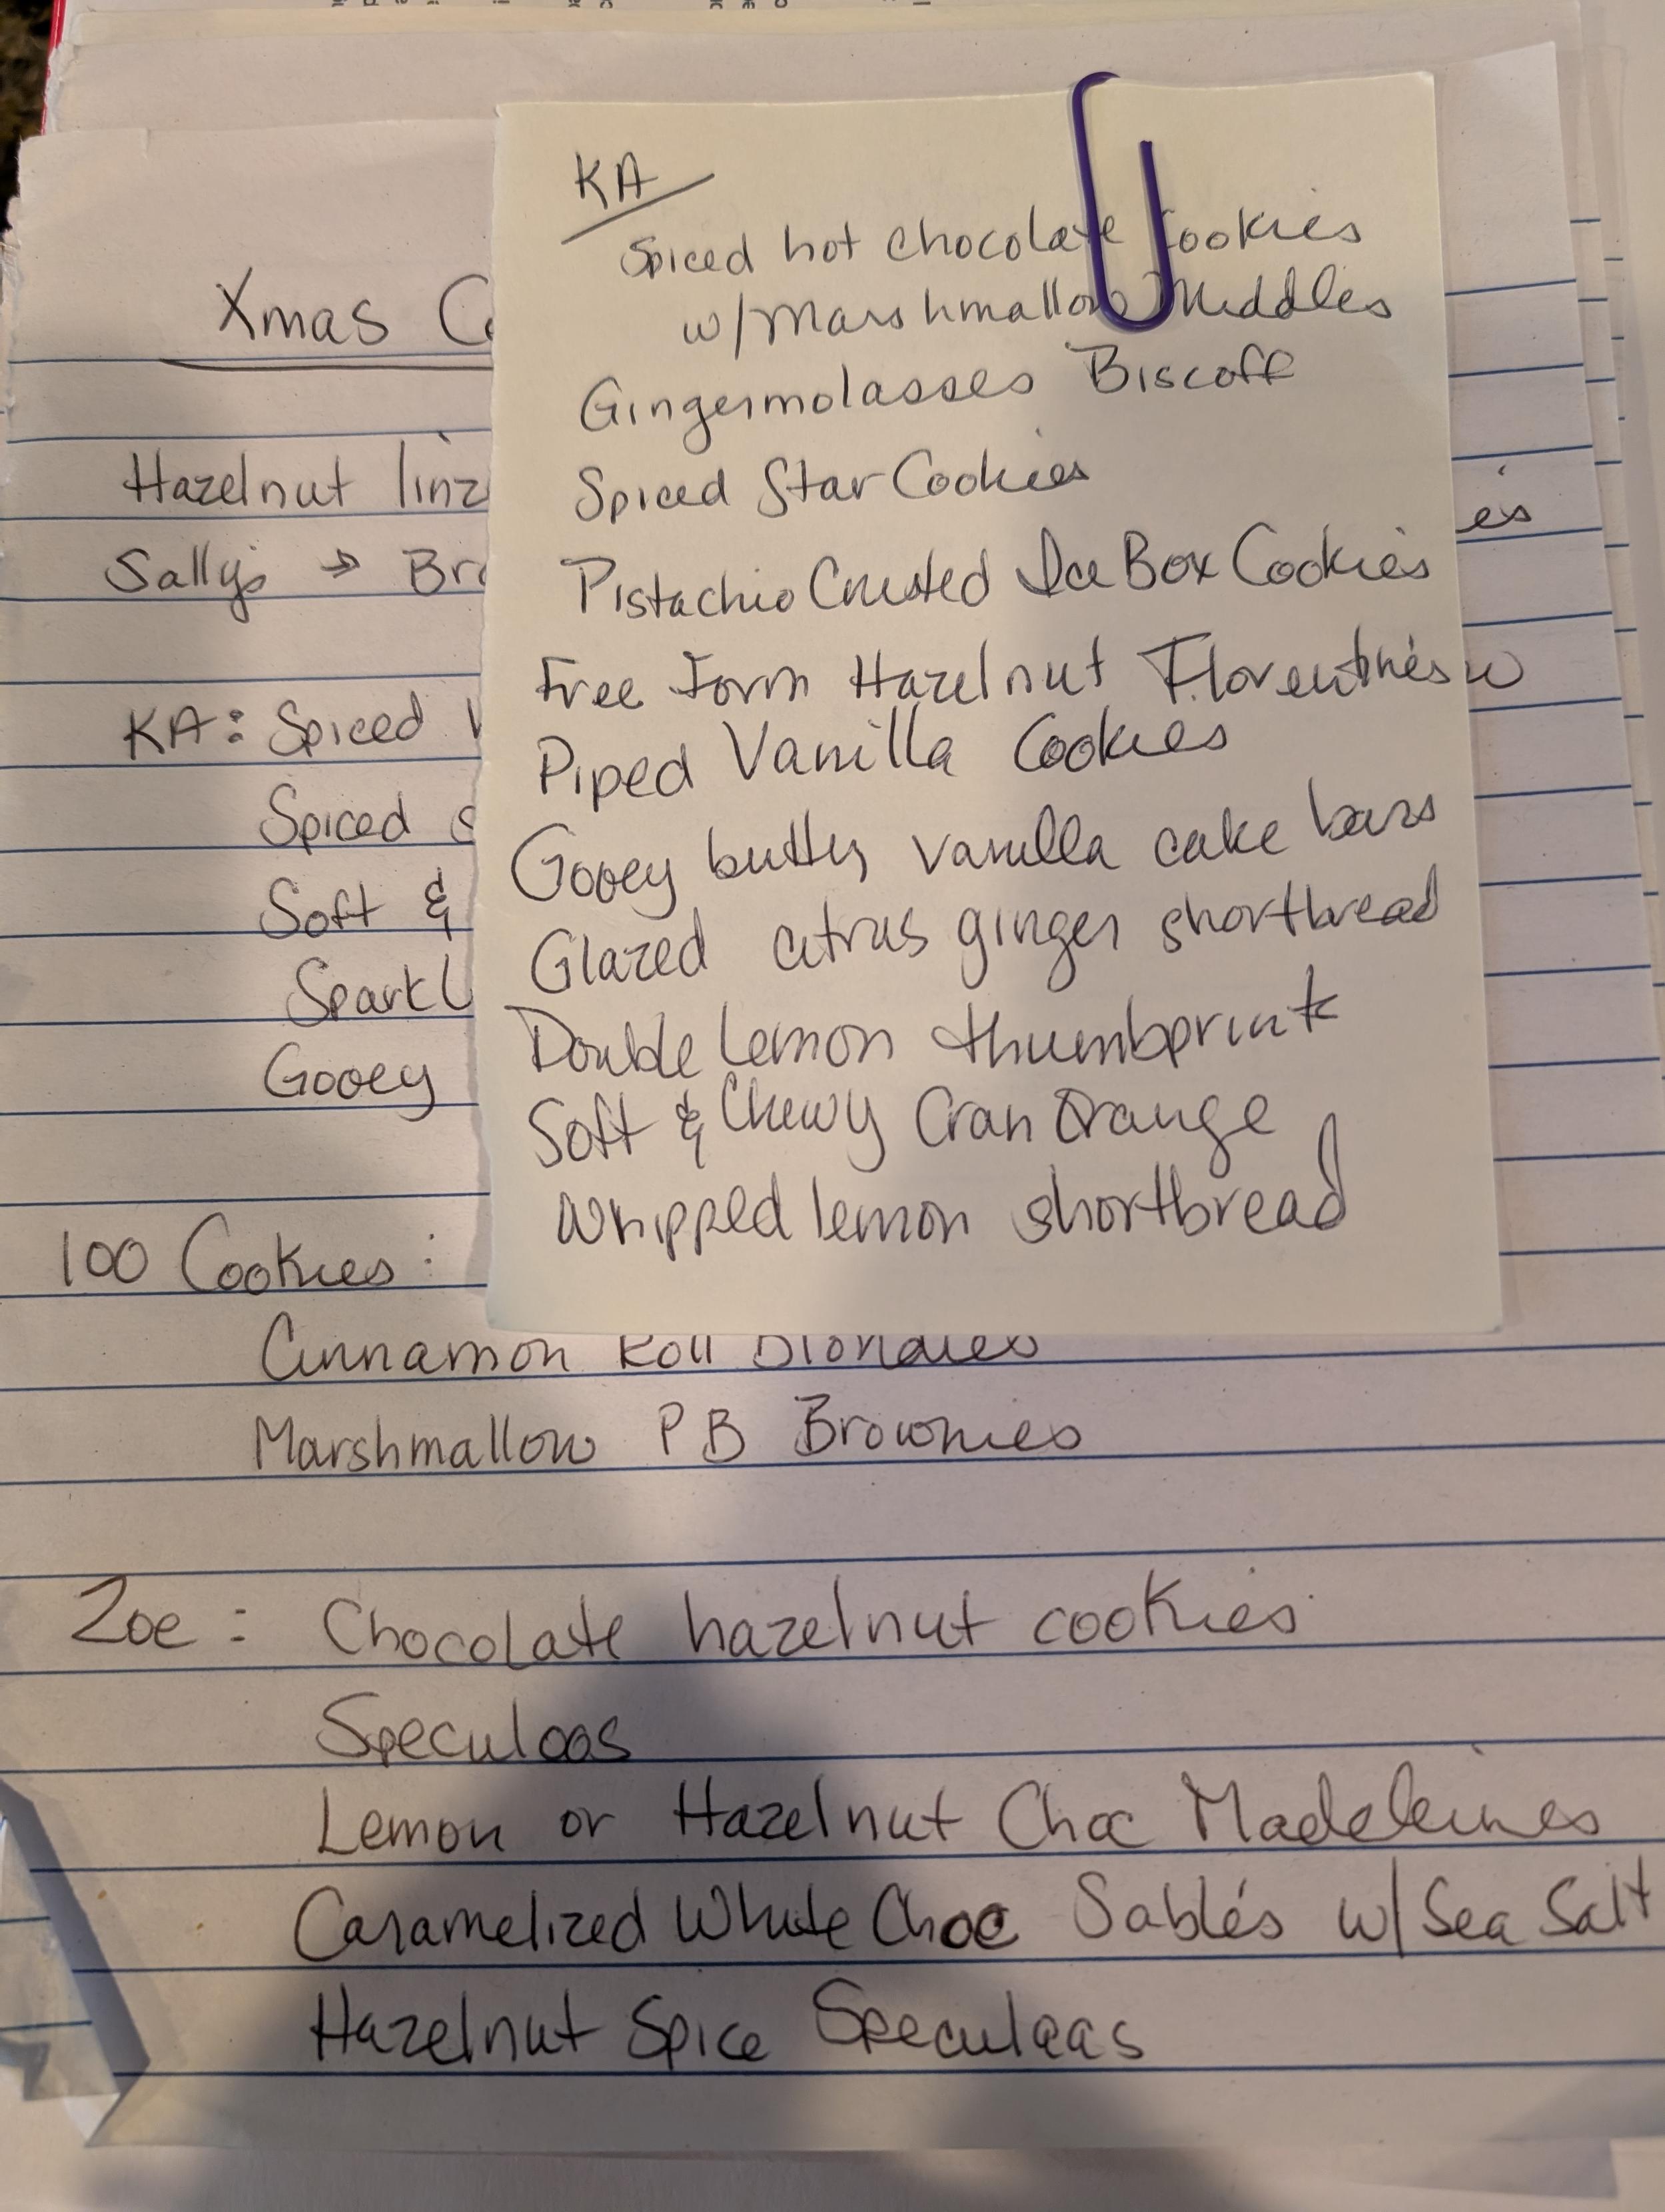 KA
Spiced hot chocolate Cookies
w/Marshmallow Middles
Gingermolasses Biscoff
Spiced Star Cookies
Pistachio Crusted Ice Box Cookies
Free Form Hazelnut Florentines
Piped Vanilla Cookies
Gooey buttery vanilla cake bars
Glazed citrus ginger shortbread
Double Lemon thumbprint
Soft & Chewy Cran Orange
Whipped lemon shortbread
Xmas
Hazelnut
Sally's →
KA: Spiced
Spiced
Soft &
Gooey
100 Cookies:
Cinnamon Roll Blondies
Marshmallow PB Brownies
Zoe: Chocolate hazelnut cookies
Speculoos
Lemon or Hazelnut Choc Madeleines
Caramelized White Choc Sablés w/ Sea Salt
Hazelnut Spice Speculaas